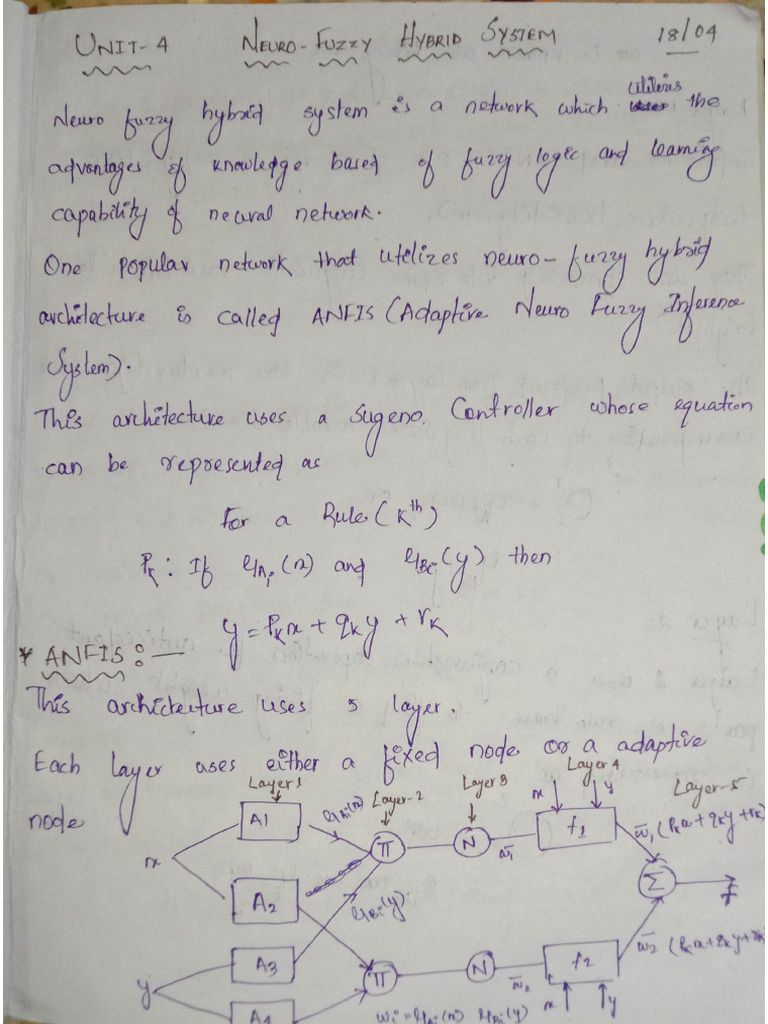 UNIT-4 NEURO-FUZZY HYBRID SYSTEM 18/04
Neuro fuzzy hybrid system is a network which utilizes the
advantages of knowledge based of fuzzy logic and learning
capability of neural network.
One popular network that utilizes neuro-fuzzy hybrid
architecture is called ANFIS (Adaptive Neuro Fuzzy Inference
System).
This architecture uses a sugeno. Controller whose equation
can be represented as
For a Rule (Kth)
PK: If μAi(x) and μBi(y) then
y = PKx + qKy + rK
* ANFIS:—
This architecture uses 5 layer.
Each layer uses either a fixed node or a adaptive
node
Layer 1 μAi(x) Layer-2 Layer 3 Layer 4 Layer-5
x y
A1 π N w̄1 f1 w̄1 (PKx + qKy + rK)
x
A2 μBi(y) Σ f
A3 π N w̄2 f2 w̄2 (PKx + qKy + rK)
y
A4 wi = μAi(x) μBi(y) x y